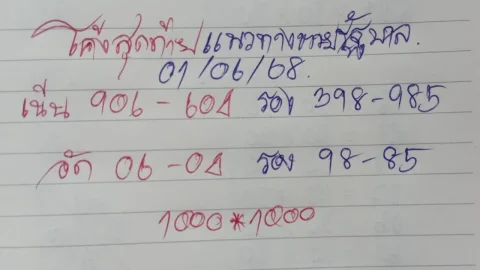 โค้งสุดท้ายแนวทางหวยรัฐบาล.
01/06/68.
เน้น 906-604 รอง 398-985
จัด 06-04 รอง 98-85
1000*1000